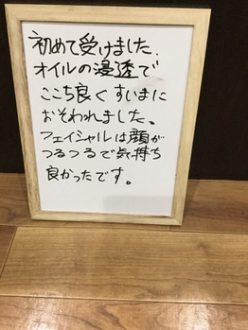 初めて受けました.
オイルの浸透で
ここち良くすいまに
おそわれました、
フェイシャルは顔が
つるつるで気持ち
良かったです。